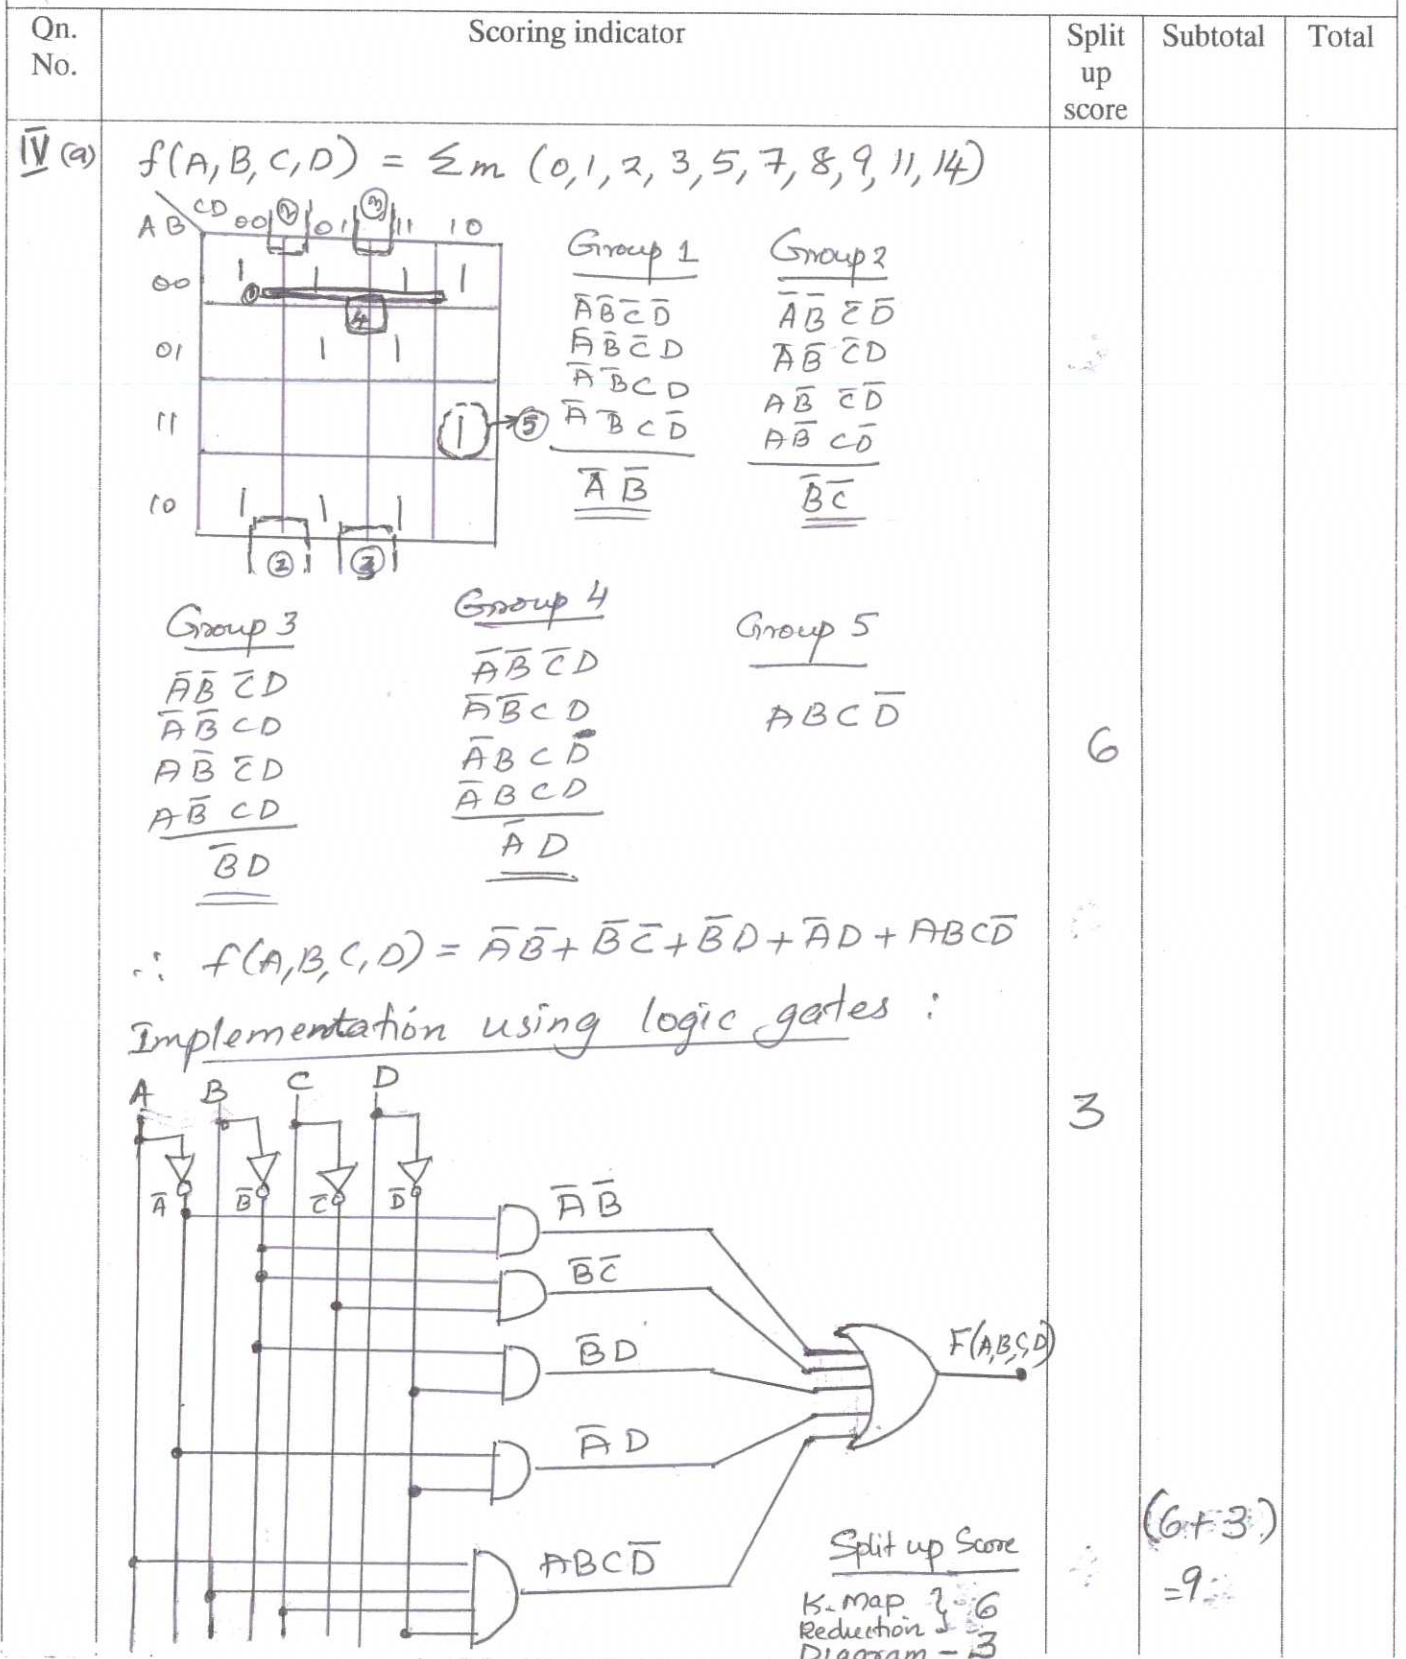 Qn. No.
Scoring indicator
Split up score
Subtotal
Total
IV (a)
f(A,B,C,D) = Σm (0,1,2,3,5,7,8,9,11,14)
AB CD 00 ② 01 ③ 11 10
00 1 1 1 1
① 4
01 1 1
11 1 → ⑤
10 1 1 1
② ③
Group 1
A̅B̅C̅D̅
A̅B̅C̅D
A̅B̅CD
A̅B̅CD̅
A̅B̅
Group 2
A̅B̅C̅D̅
A̅B̅C̅D
AB̅C̅D̅
AB̅CD̅
B̅C̅
Group 3
A̅B̅C̅D
A̅B̅CD
AB̅C̅D
AB̅CD
B̅D
Group 4
A̅B̅C̅D
A̅B̅CD
A̅BCD
A̅BCD
A̅D
Group 5
ABCD̅
6
∴ f(A,B,C,D) = A̅B̅ + B̅C̅ + B̅D + A̅D + ABCD̅
Implementation using logic gates :
3
A B C D
A̅ B̅ C̅ D̅
A̅B̅
B̅C̅
B̅D
F(A,B,C,D)
A̅D
ABCD̅
Split up Score
K-Map } - 6
Reduction
Diagram - 3
(6+3)
=9